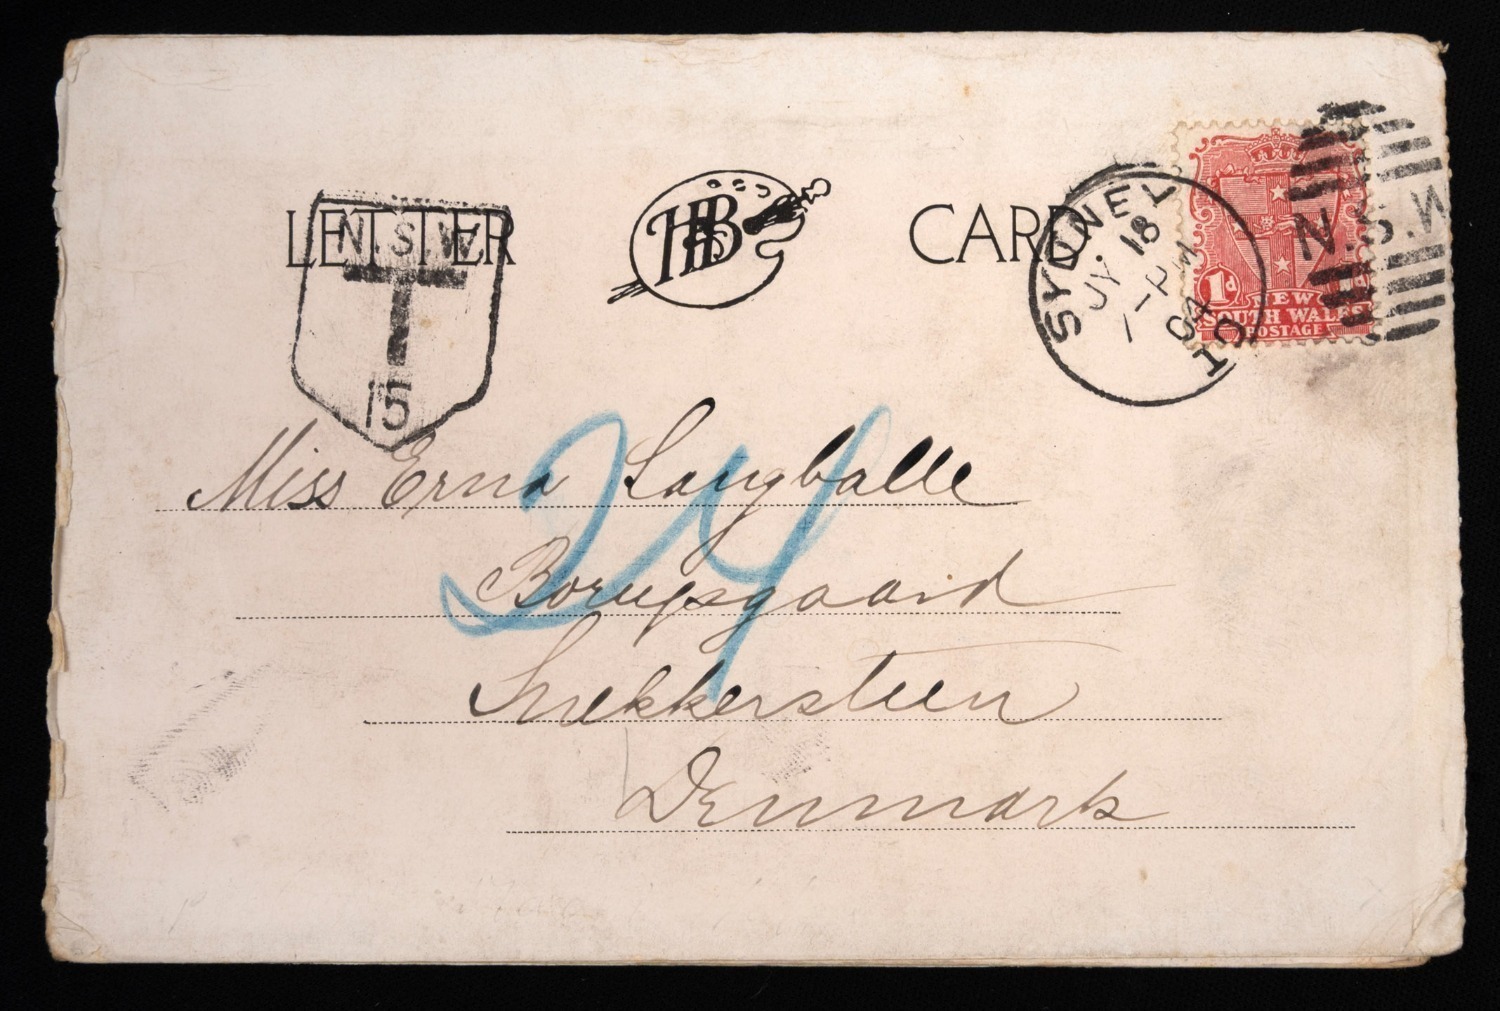 LETTER HB & S CARD
N.S.W
T
15
SYDNEY
JY 18
1-PM
04
10
N.S.W
1d
NEW
SOUTH WALES
POSTAGE
24
Miss Erna Langballe
Borupsgaard
Snekkersteen
Denmark